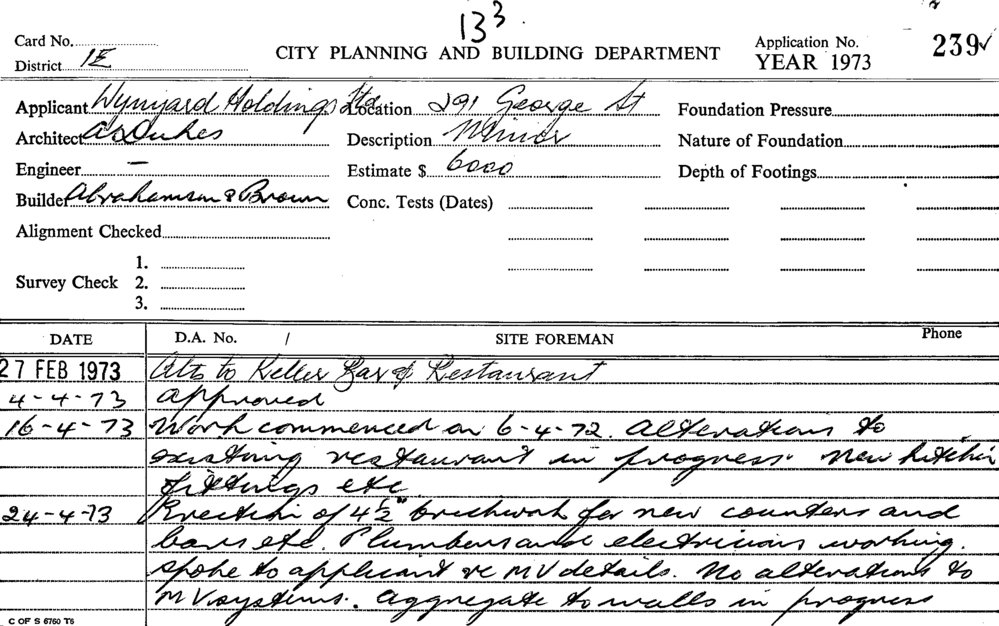 13³
Card No.
CITY PLANNING AND BUILDING DEPARTMENT
Application No. 239✓
District 1E
YEAR 1973
Applicant Wynyard Holdings Ltd Location 291 George St Foundation Pressure
Architect Description Minor Nature of Foundation
Engineer — Estimate $ 6000 Depth of Footings
Builder Abrahamson & Brown Conc. Tests (Dates)
Alignment Checked
1.
Survey Check 2.
3.
DATE D.A. No. / SITE FOREMAN Phone
27 FEB 1973 Alts to Keller Bar & Restaurant
4-4-73 Approved
16-4-73 Work commenced on 6-4-72. Alterations to
existing restaurant in progress. New kitchin
fittings etc
24-4-73 Erection of 4½" brickwork for new counters and
bars etc. Plumbers and electricians working.
spoke to applicant re MV details. No alterations to
MV systems. Aggregate to walls in progress
C OF S 6760 T6